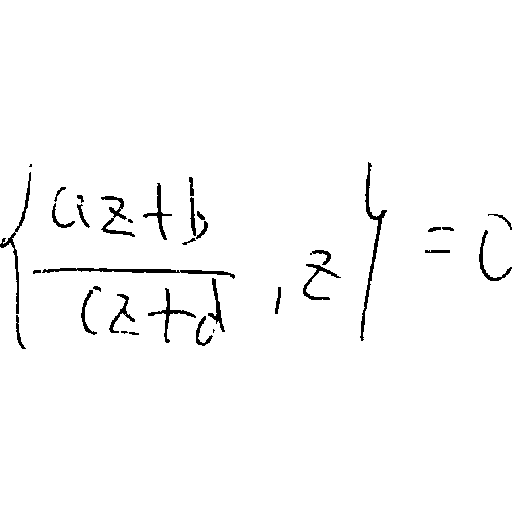 \left\{ \frac{az+b}{cz+d}, z \right\} = 0